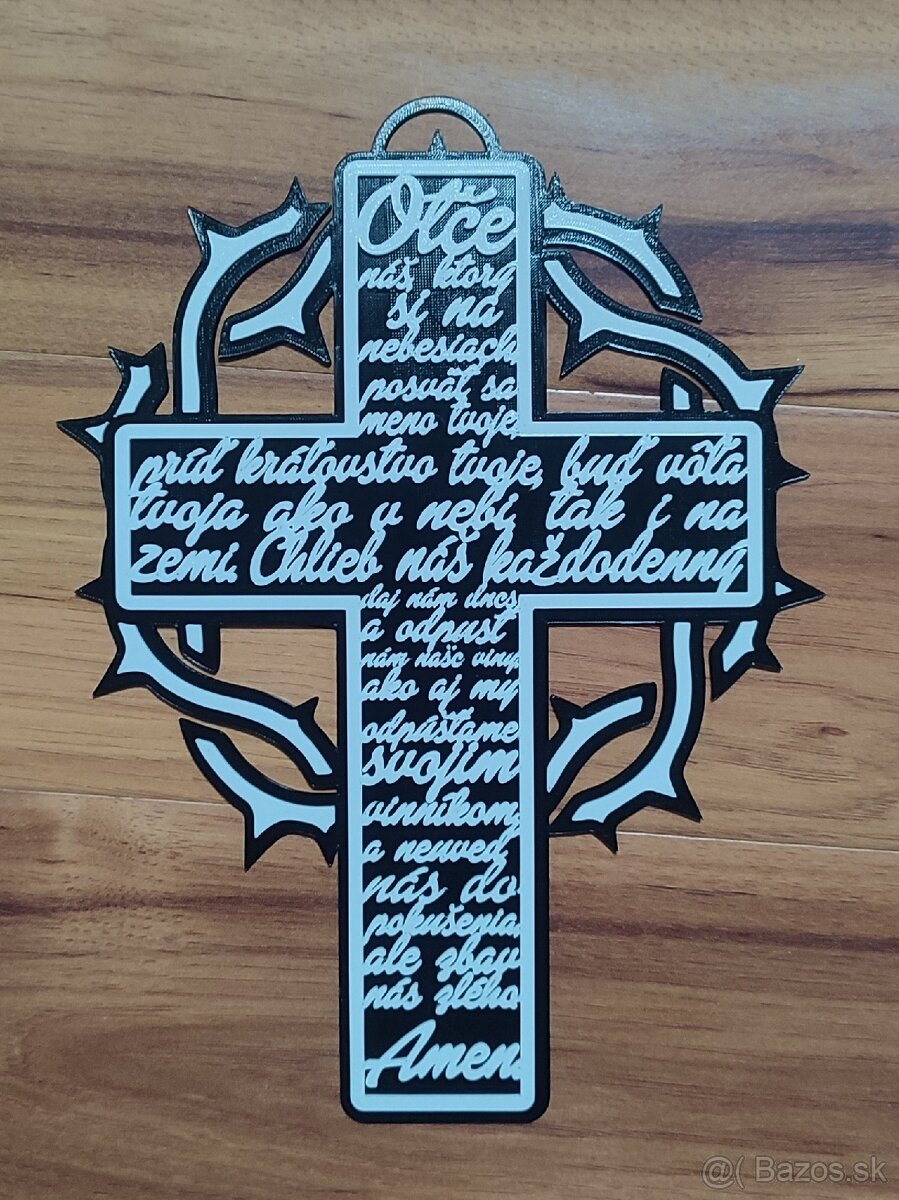 Otče
náš, ktorý
si na
nebesiach
posväť sa
meno tvoje,
príď kráľovstvo tvoje, buď vôľa
tvoja ako v nebi, tak i na
zemi. Chlieb náš každodenný
daj nám dnes
a odpusť
nám naše viny,
ako aj my
odpúšťame
svojim
vinníkom,
a neuveď
nás do
pokušenia,
ale zbav
nás zlého
Amen.
@( Bazos.sk